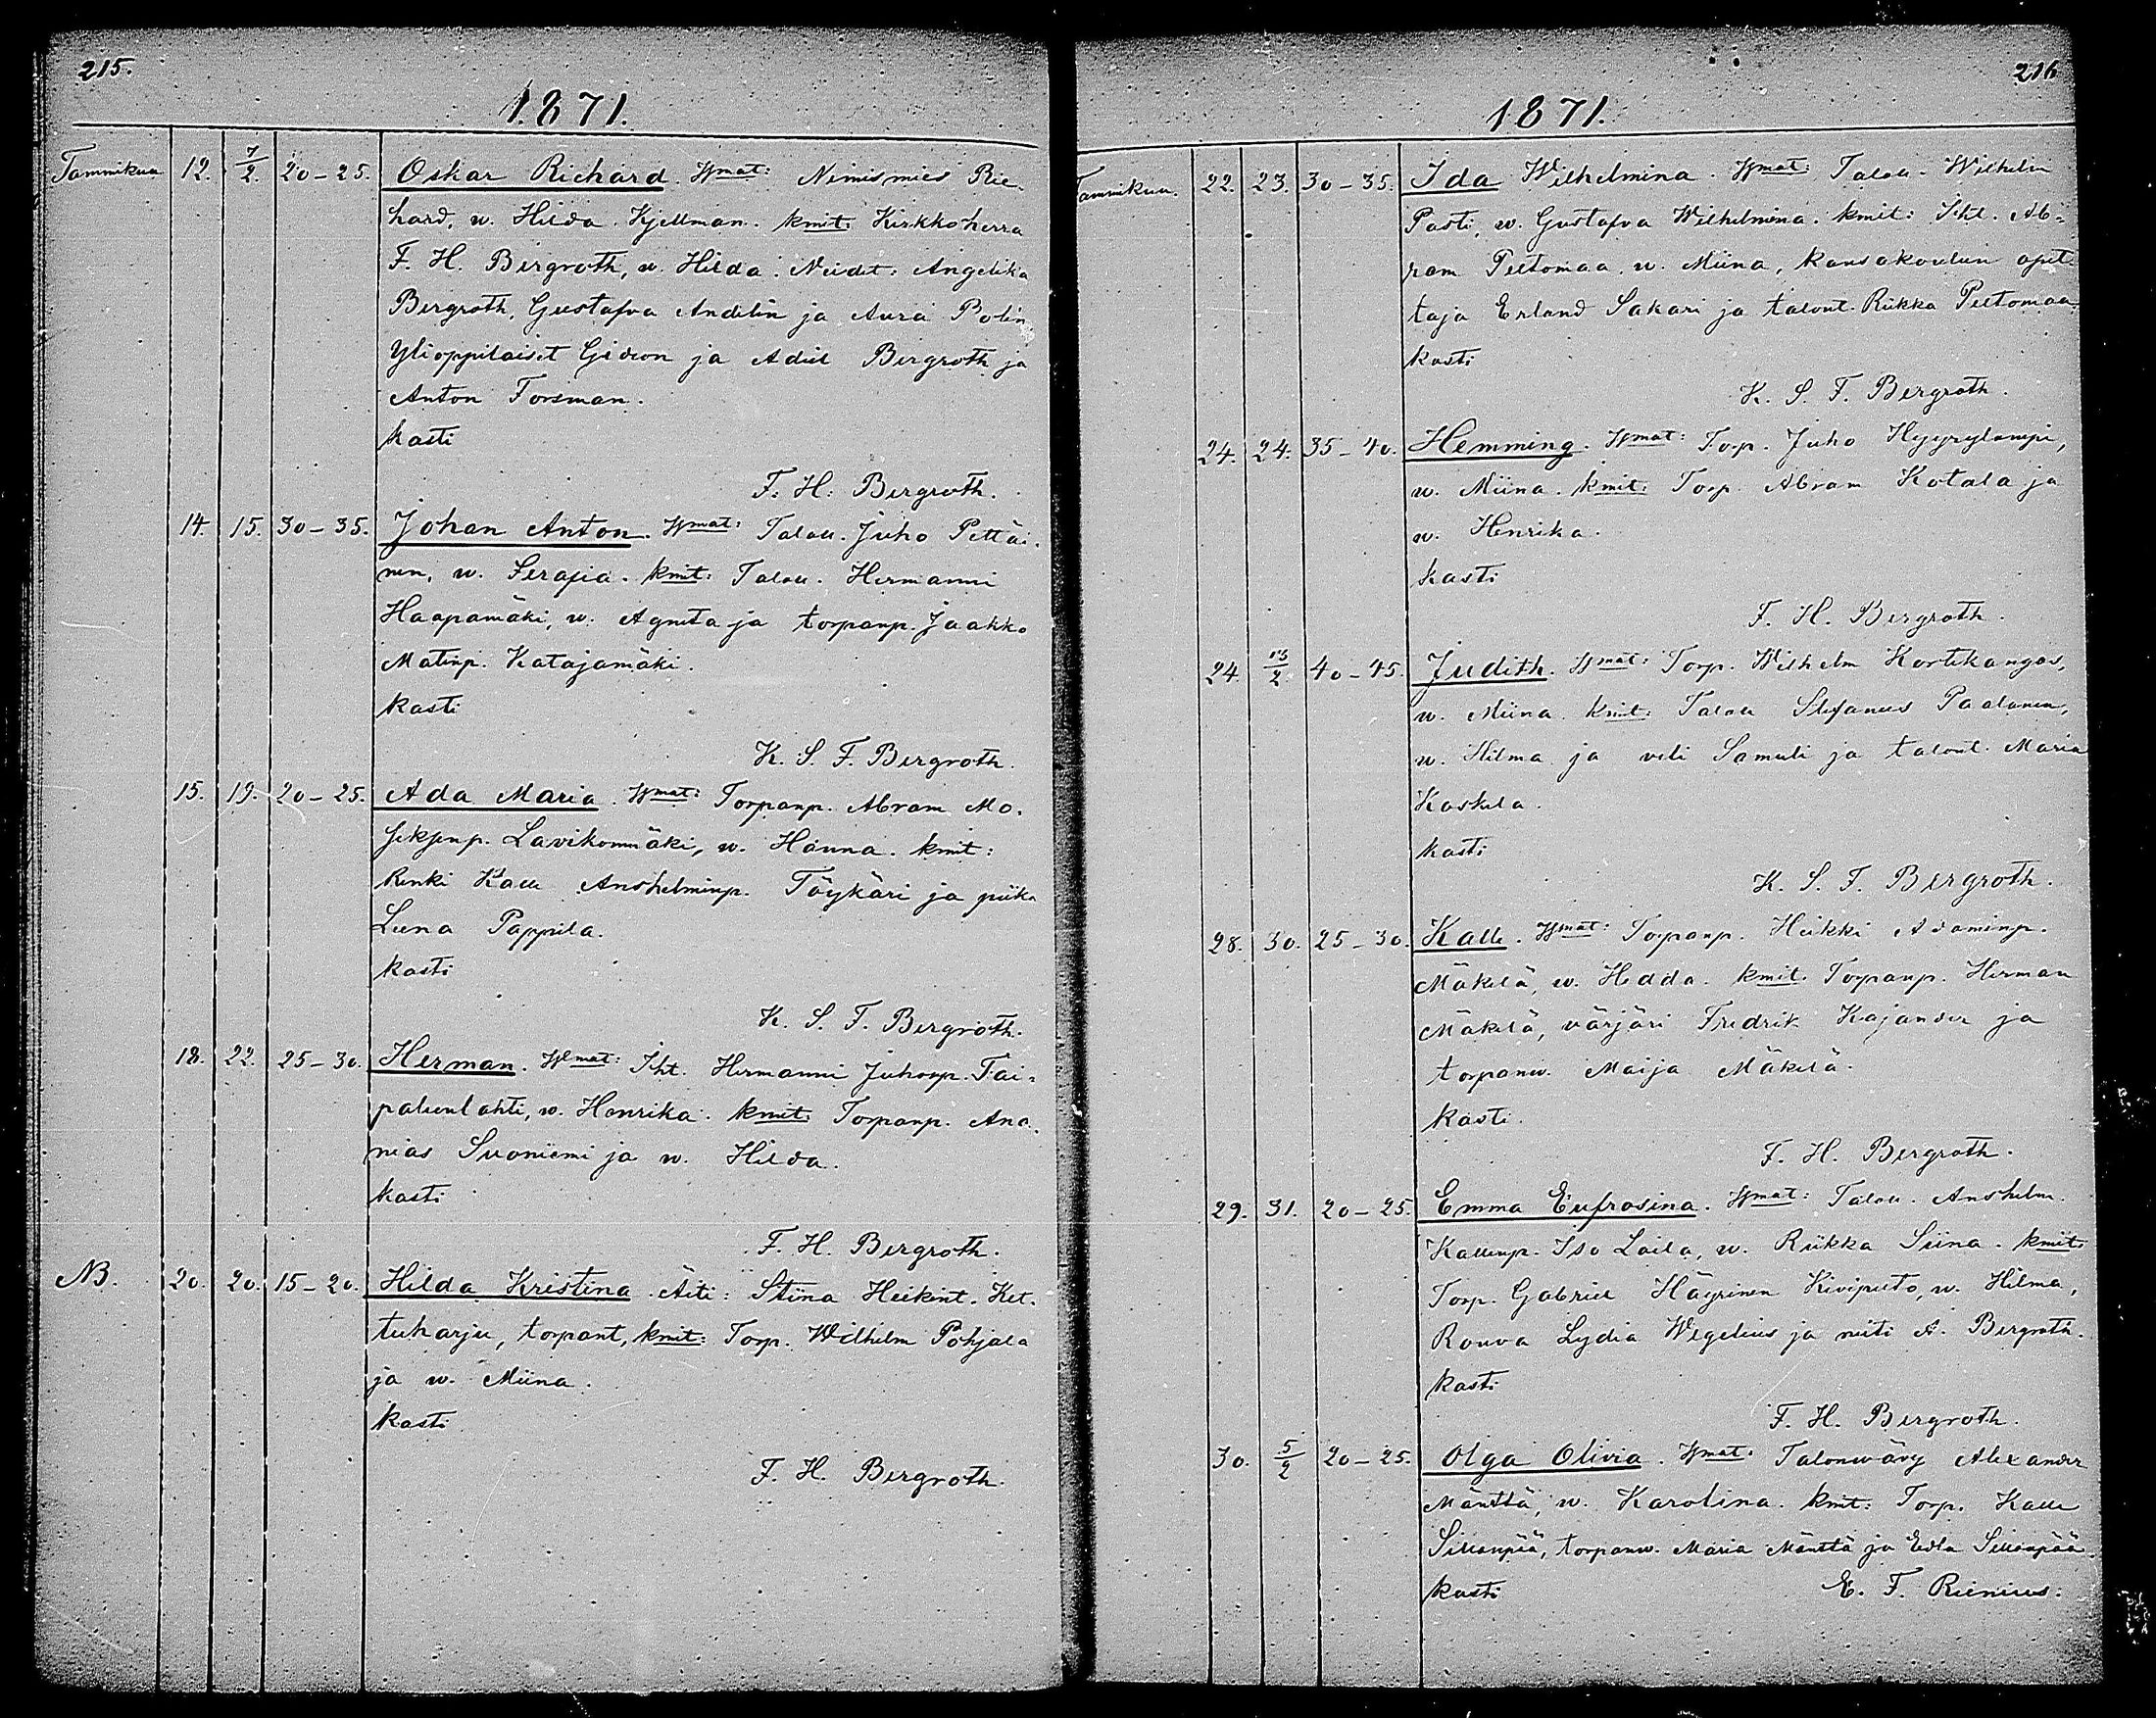 215.
1871.
Tammikuu 12. 7/2. 20-25. Oskar Richard. Wmat: Nimismies Ric-
hard, w. Hilda Kjellman. kmit: Kirkkoherra
F. H. Bergroth, w. Hilda. Neidet: Angelika
Bergroth, Gustafva Andelin ja Aura Bolin
Ylioppilaiset Gideon ja Adiel Bergroth ja
Anton Forsman.
kasti
F. H. Bergroth.
14. 15. 30-35. Johan Anton. Wmat: Taloll. Juho Pettäi-
nen, w. Serafia. kmit: Taloll. Hermanni
Haapamäki, w. Agneta ja torpanp. Jaakko
Matinp. Katajamäki.
kasti
K. S. F. Bergroth.
15. 19. 20-25. Ada Maria. Wmat: Torpanp. Abram Mo-
seksenp. Lavikonmäki, w. Hanna. kmit:
Renki Kalle Anshelminp. Töykäri ja piika
Leena Pappila.
kasti
K. S. F. Bergroth.
18. 22. 25-30. Herman. Wmat: Iht. Hermanni Juhonp. Tai-
paleenlahti, w. Henrika. kmit: Torpanp. Ana-
nias Suoniemi ja w. Hilda.
kasti
F. H. Bergroth.
NB. 20. 20. 15-20. Hilda Kristina. Äiti: Stiina Heikint. Ket-
tuharju, torpant, kmit: Torp. Wilhelm Pohjala
ja w. Miina.
kasti
F. H. Bergroth.
216
1871.
Tammikuu. 22. 23. 30-35. Ida Wilhelmina. Wmat: Taloll. Wilhelm
Pasti, w. Gustafva Wilhelmina. kmit: Iht. Ab-
ram Peltomaa, w. Miina, kansakoulun opet-
taja Erland Sakari ja talont. Riikka Peltomaa.
kasti
K. S. F. Bergroth.
24. 24. 35-40. Hemming. Wmat: Torp. Juho Hyyrylampi,
w. Miina. kmit: Torp. Abram Kotala ja
w. Henrika.
kasti
F. H. Bergroth.
24. 13/2 40-45. Judith. Wmat: Torp. Wilhelm Kortekangas,
w. Miina. kmit: Taloll Stefanus Paalanen,
w. Hilma ja veli Samuli ja talont. Maria
Koskela.
kasti
K. S. F. Bergroth.
28. 30. 25-30. Kalle. Wmat: Torpanp. Heikki Adaminp.
Mäkelä, w. Hedda. kmit: Torpanp. Herman
Mäkelä, värjäri Fredrik Kajander ja
torpanw. Maija Mäkelä.
kasti.
F. H. Bergroth.
29. 31. 20-25. Emma Eufrosina. Wmat: Taloll. Anshelm
Kallenp. Iso Laila, w. Riikka Siina. kmit:
Torp. Gabriel Häyrinen Kivipelto, w. Hilma,
Rouva Lydia Wegelius ja neiti A. Bergroth.
kasti
F. H. Bergroth.
30. 5/2 20-25. Olga Olivia. Wmat: Talonwävy Alexander
Mänttä, w. Karolina. kmit: Torp. Kalle
Sillanpää, torpanw. Maria Mänttä ja Edla Sillanpää
kasti E. F. Rienius.